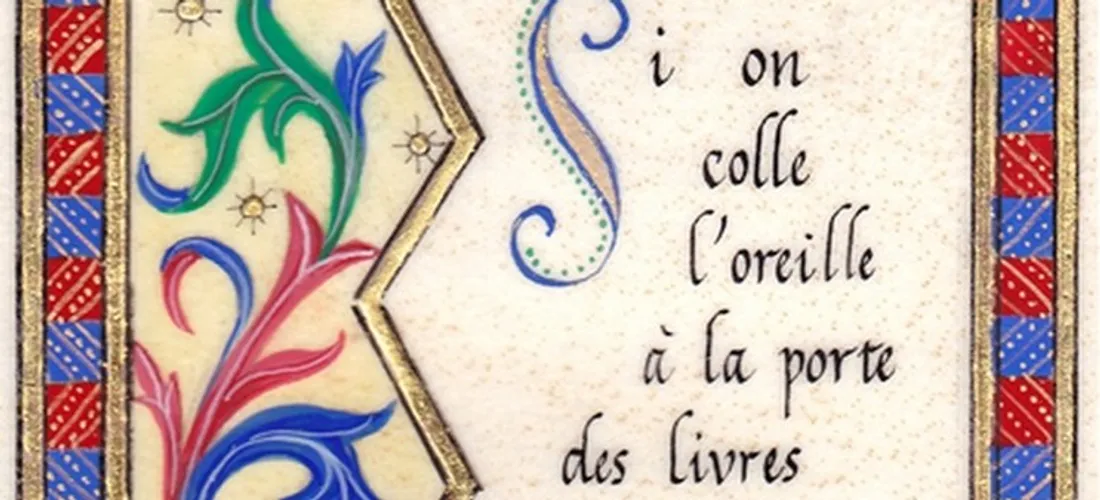 Si on
colle
l'oreille
à la porte
des livres